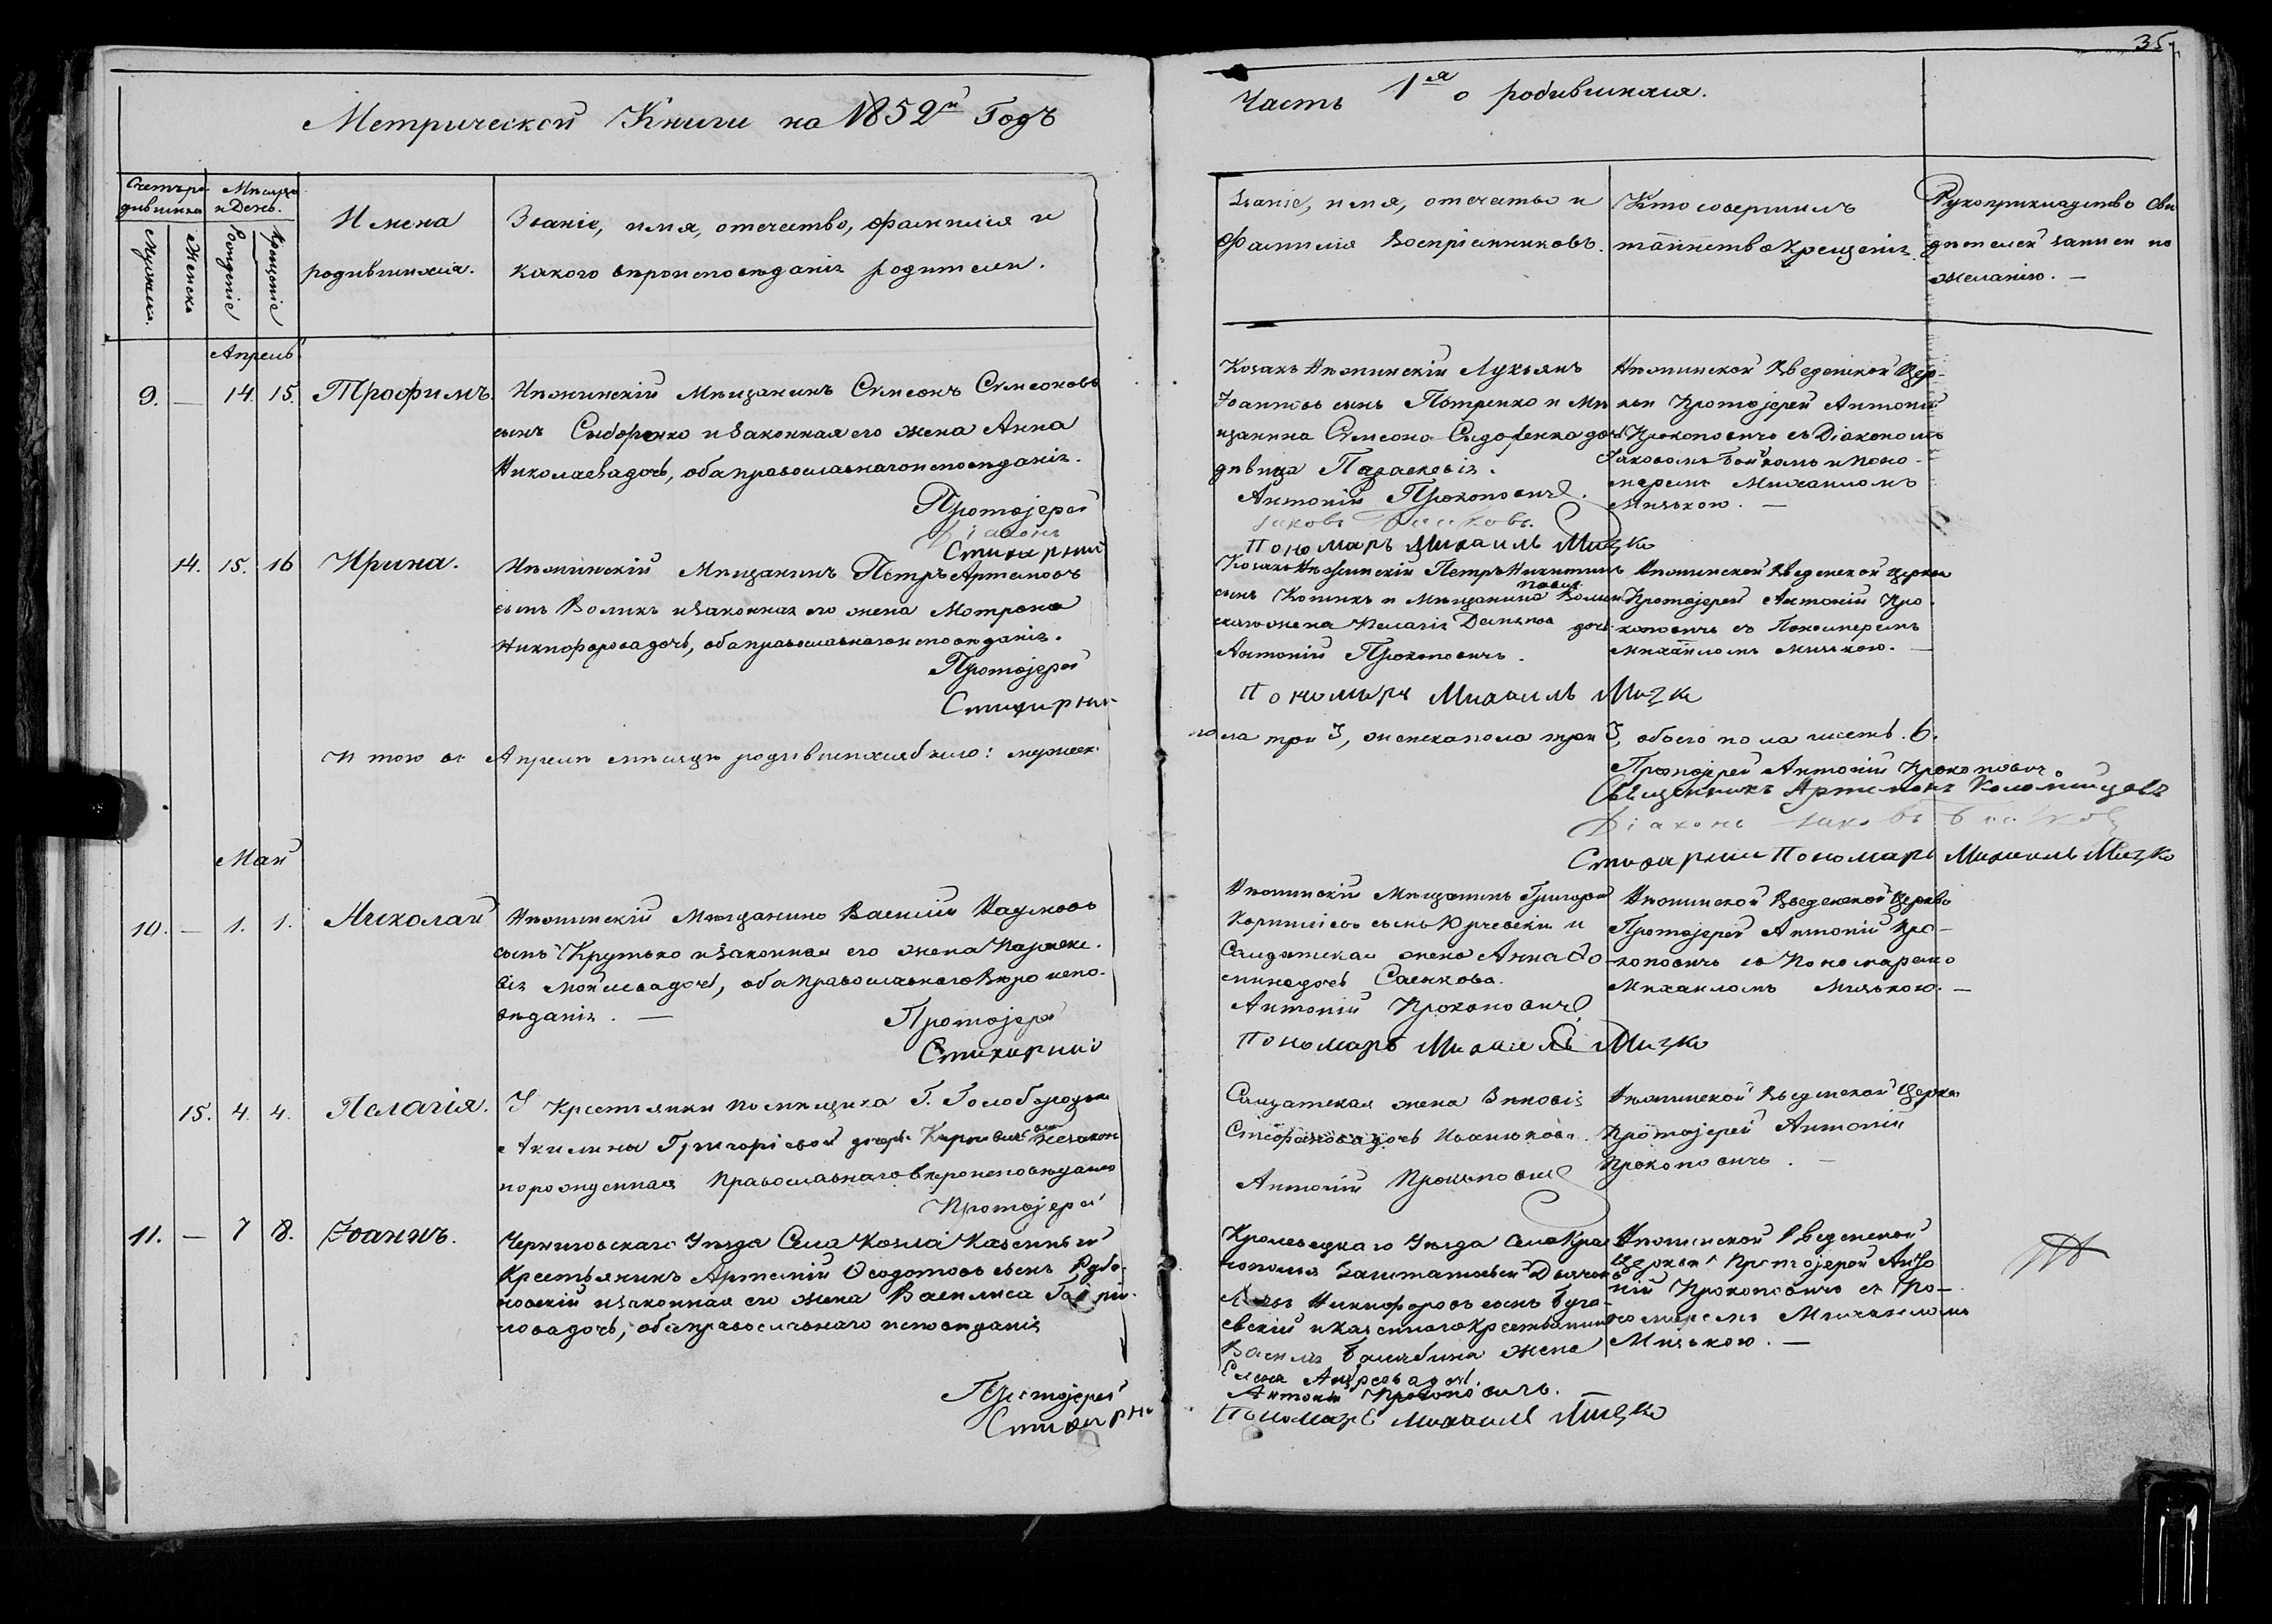 35
Метрической Книги на 1852й Годъ
Часть 1я о родившихся.
Счетъ родившихся
Мѣсяцъ и День.
Мужеска.
Женска
Рожденіе
Крещеніе
Имена
родившихся.
Званіе, имя, отечество, фамилія и
какого вѣроисповѣданія родители.
Званіе, имя, отечество и
фамилія Воспріемниковъ.
Кто совершилъ
таинство Крещенія.
Рукоприкладство сви
дѣтелей записи по
желанію. —
Апрель
9. — 14. 15. Трофимъ.
Нѣжинскій Мѣщанинъ Симеонъ Симеоновъ
сынъ Сидоренко и законная его жена Анна
Николаева дочь, оба православнаго исповѣданія.
Протоіерей
Діаконъ
Стихарный
Козакъ Нѣжинскій Лукьянъ
Іоанновъ сынъ Петренко и Мѣ
щанина Симеона Сидоренка дочь
дѣвица Параскевія.
Антоній Прокоповичъ.
Іаковъ Бойковъ.
Пономарь Михаилъ Мицко
Нѣжинской Введенской Цер-
кви Протоіерей Антоній
Прокоповичъ съ Діакономъ
Іаковомъ Бойкомъ и Поно-
маремъ Михаиломъ
Мицькою. —
14. 15. 16 Ирина.
Нѣжинскій Мѣщанинъ Петръ Артемовъ
сынъ Воликъ и законная его жена Мотрона
Никифорова дочь, оба православнаго исповѣданія.
Протоіерей
Стихарный
Козакъ Нѣжинскій Петръ Никитинъ
сынъ Котикъ и Мѣщанина
жена Пелагія Демьянова дочь
Антоній Прокоповичъ.
Пономарь Михаилъ Мицко
Нѣжинской Введенской Церкви
Протоіерей Антоній Про-
коповичъ съ Пономаремъ
Михаиломъ Мицькою. —
Итого въ Апрелѣ мѣсяцѣ родившихся было: мужеск.
пола три 3, женска пола три 3, обоего пола шесть. 6.
Протоіерей Антоній Прокоповичъ
Священникъ Артемонъ Коломійцовъ
Діаконъ Іаковъ Бойковъ
Стихарный Пономарь Михаилъ Мицко
Май
10. — 1. 1. Николай
Нѣжинскій Мѣщанинъ Василій Наумовъ
сынъ Крутько и законная его жена Параске-
вія Мойсеева дочь, оба православнаго вѣроиспо-
вѣданія. —
Протоіерей
Стихарный
Нѣжинскій Мѣщанинъ Григорій
Корниліевъ сынъ Юрчевскій и
Солдатская жена Анна Фо-
мина дочь Саенкова.
Антоній Прокоповичъ
Пономарь Михаилъ Мицко
Нѣжинской Введенской Церкви
Протоіерей Антоній Про-
коповичъ съ Пономаремъ
Михаиломъ Мицькою. —
15. 4. 4. Пелагія.
У Крестьянки помѣщика Г. Голобородька
Акилины Григоріевой дочери незакон
норожденная Православнаго вѣроисповѣданія
Протоіерей
Солдатская жена Зиновія
Стефанова дочь Иванькова.
Антоній Прокоповичъ
Нѣжинской Введенской Церкви
Протоіерей Антоній
Прокоповичъ. —
11. — 7 8. Іоаннъ.
Черниговскаго Уѣзда Села Козла Казенный
Крестьянинъ Артемій Ѳеодотовъ сынъ Рубa-
новскій и законная его жена Василиса Гаврі-
лова дочь, оба православнаго исповѣданія
Протоіерей
Стихарный
Кролевецкаго Уѣзда Села Кра
снополья Заштатный Дьячокъ
Никифоровъ сынъ Буга-
евскій и казеннаго Крестьянина
Василія жена
Елена Андреева дочь.
Антоній Прокоповичъ.
Пономарь Михаилъ Мицко
Нѣжинской Введенской
Церкви Протоіерей Анто
ній Прокоповичъ съ По-
номаремъ Михаиломъ
Мицькою. —